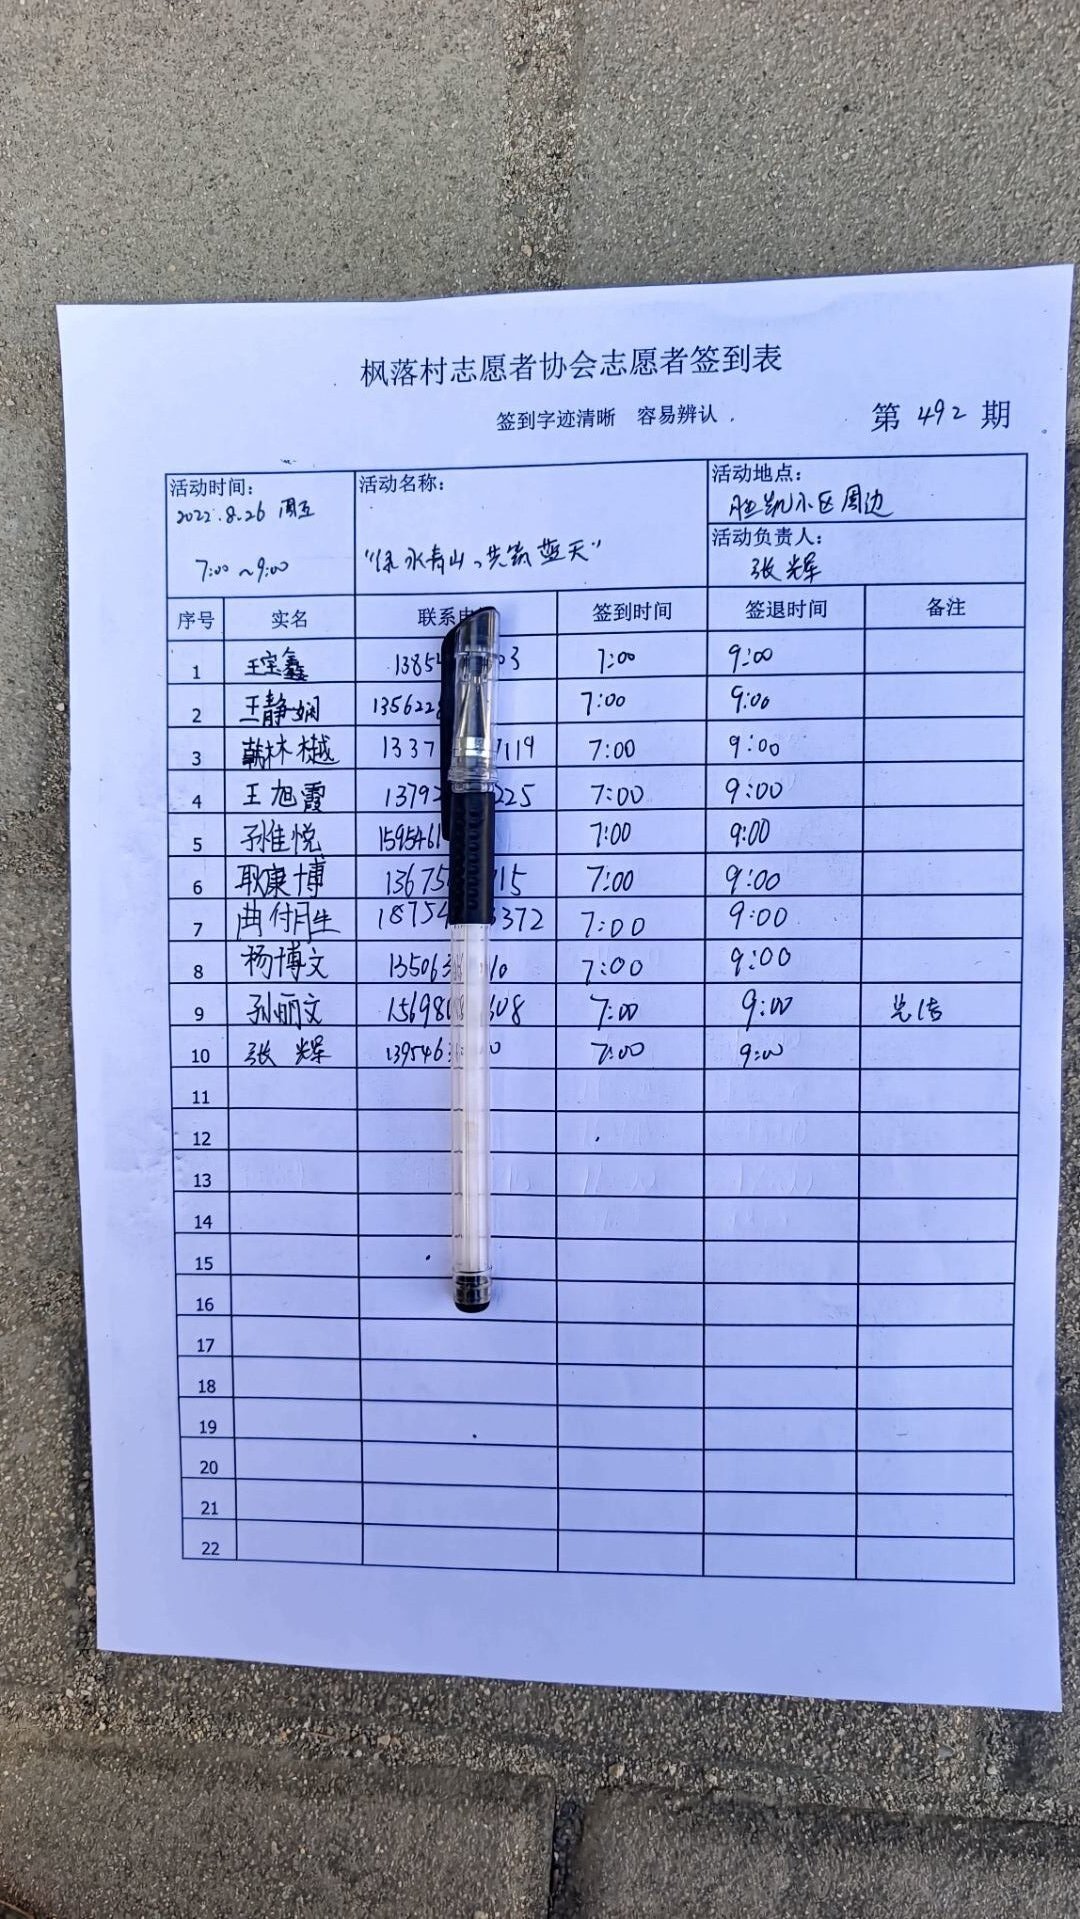 枫落村志愿者协会志愿者签到表
签到字迹清晰 容易辨认.
第 492 期
活动时间:
2022.8.26 周五
7:00 ~ 9:00
活动名称:
"绿水青山、共筑蓝天"
活动地点:
胜凯小区周边
活动负责人:
张辉
序号 实名 联系 签到时间 签退时间 备注
1 王宝鑫 1385 03 7:00 9:00
2 王静娴 135622 7:00 9:00
3 韩林樾 1337 119 7:00 9:00
4 王旭霞 1379 225 7:00 9:00
5 孙佳悦 159546 7:00 9:00
6 耿康博 13675 15 7:00 9:00
7 曲付生 1875 372 7:00 9:00
8 杨博文 13506 10 7:00 9:00
9 孙丽文 15698 08 7:00 9:00
10 张辉 139546 0 7:00 9:00
11
12
13
14
15
16
17
18
19
20
21
22